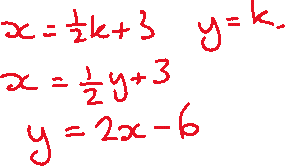 x = ½k + 3 y = k.
x = ½y + 3
y = 2x - 6